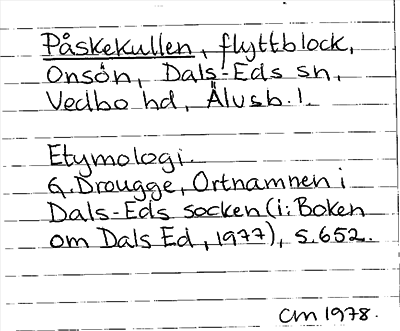 Påskekullen, flyttblock,
Onsön, Dals-Eds sn,
Vedbo hd, Älvsb. l.
Etymologi.
G. Drougge, Ortnamnen i
Dals-Eds socken (i: Boken
om Dals Ed, 1977), s. 652.
CM 1978.